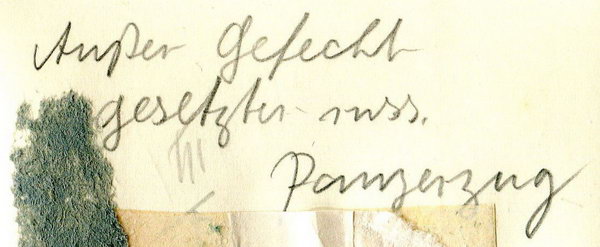 Außer Gefecht
gesetzter russ.
Panzerzug